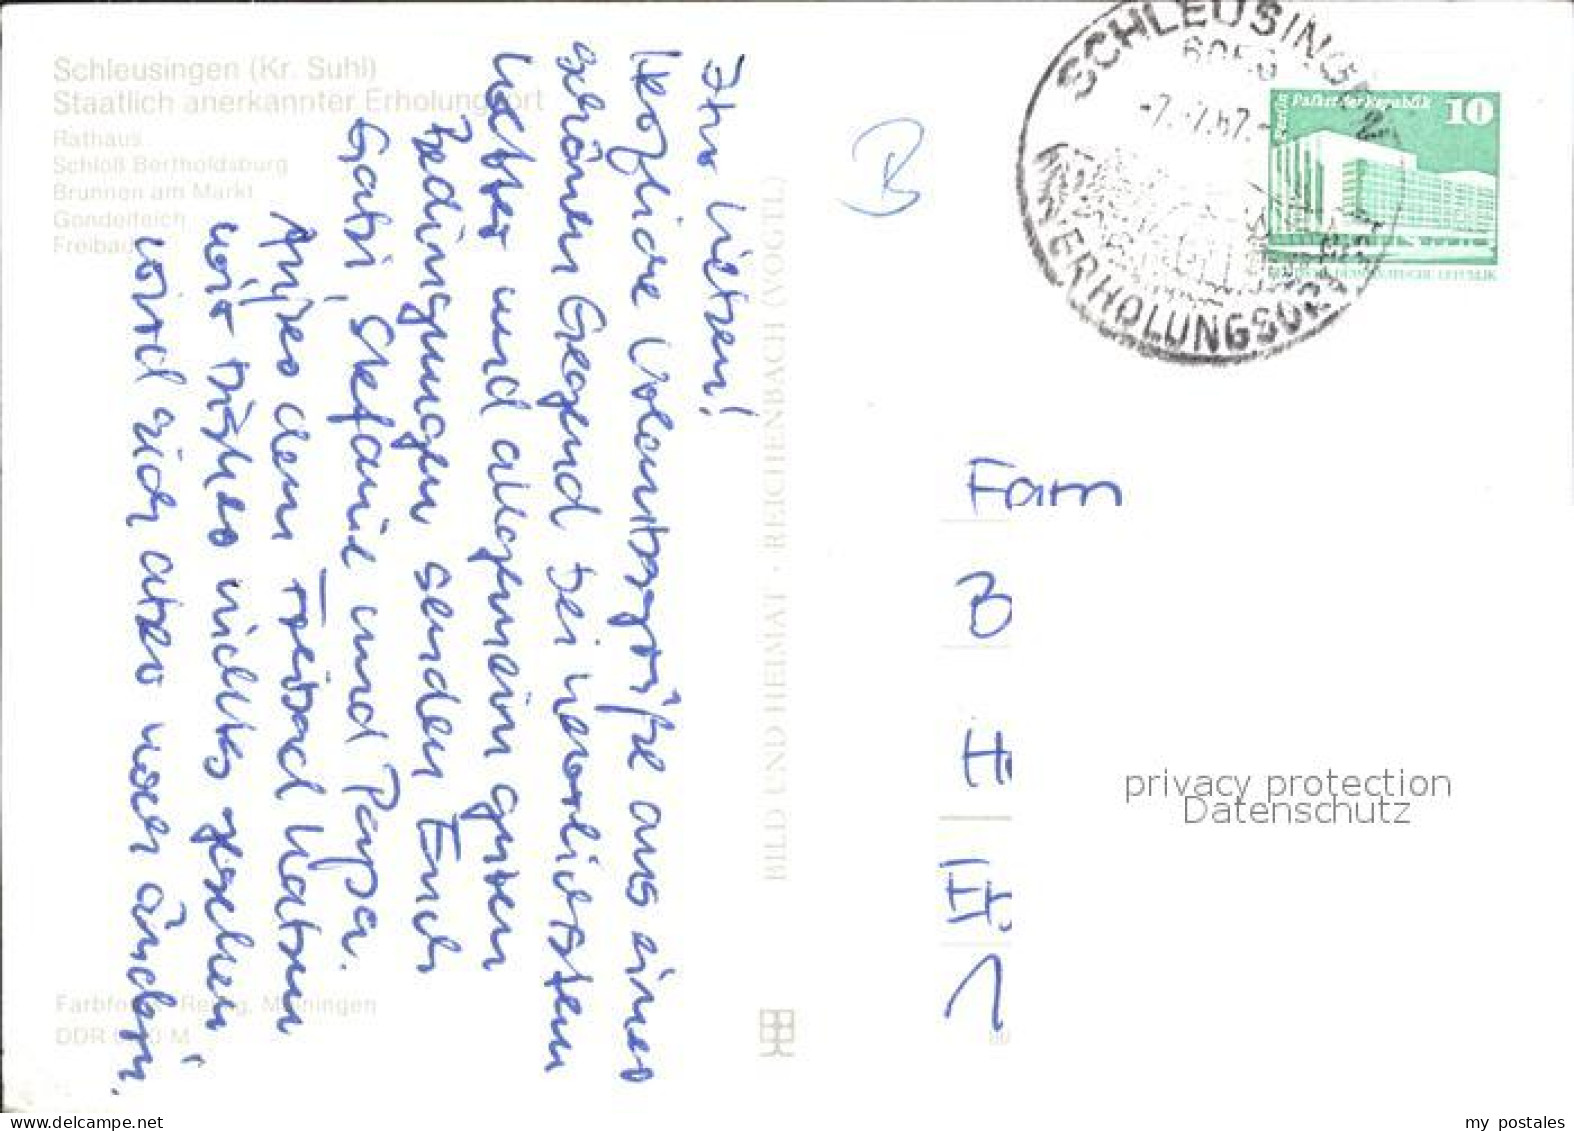 Schleusingen (Kr. Suhl)
Staatlich anerkannter Erholungsort
Rathaus
Schloß Bertholdsburg
Brunnen am Markt
Gondelteich
Freibad
Ihr Lieben!
Herzliche Urlaubsgrüße aus einer
schönen Gegend bei herrlichstem
Wetter und allgemein guten
Bedingungen senden Euch
Gabi, Stefanie und Papa.
Außer dem Freibad haben
wir bisher nichts gesehen
wird sich aber noch ändern.
Farbfoto: Meiningen
DDR M
BILD UND HEIMAT · REICHENBACH (VOGTL)
B
SCHLEUSINGEN
ERHOLUNGSORT
10
Palast der Republik
Berlin
Fam
B
privacy protection
Datenschutz
my postales